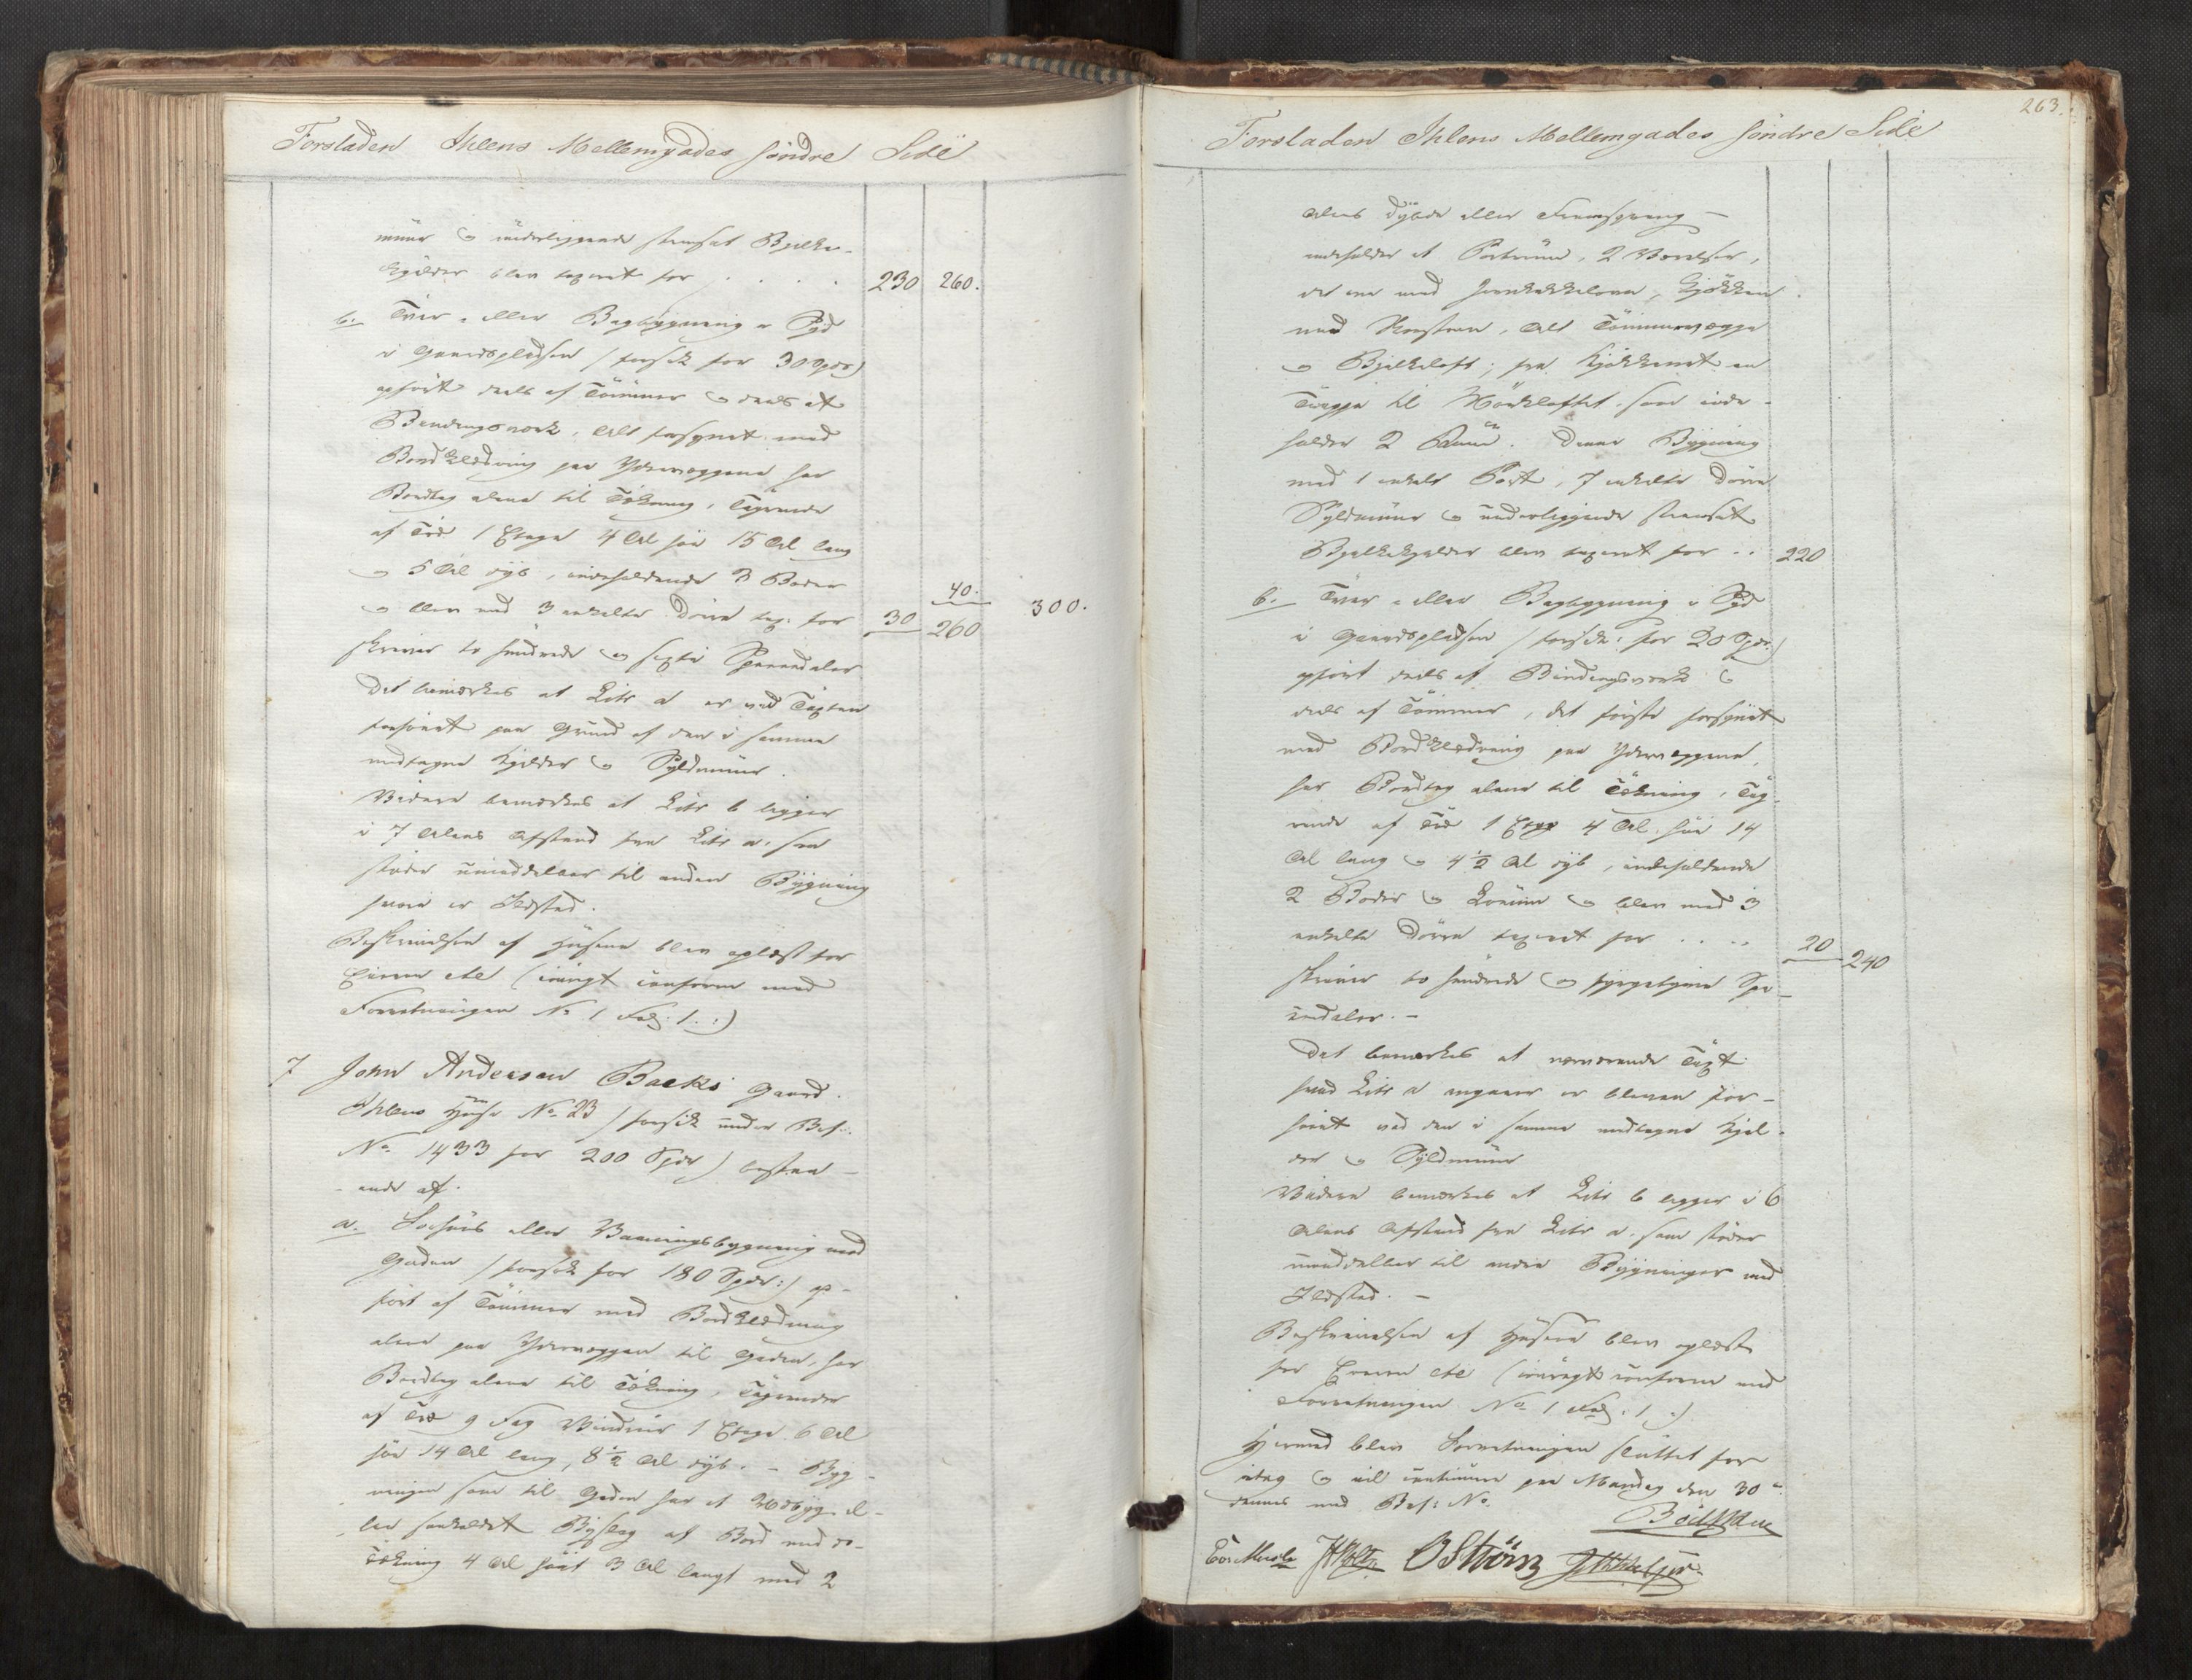 Forstaden Ihlens Mellemgades søndre Side
muur & underliggende steensat Bjelke-
kjelder blev taxeret for . . . . 230 260.
b. Tver- eller Bagbygning i Syd
i Gaardspladsen /forsik for 30 Spdr)
opført deels af Tømmer & deels af
Bindingsverk, alt forsynet med
Bordklædning paa Ydervæggene har
Bordtag alene til Tækning, Tagrende
af Træ 1 Etage 4 Al høi 15 Al lang
& 5 Al dyb, indeholdende 3 Boder 40.
& blev med 3 enkelte Døre tax: for 30 260 300.
skriver to hundrede og sexti Speciedaler
Det bemærkes at Litr a er ved Taxten
forhøiet paa Grund af den i samme
medtagne Kjelder & Syldmuur.
Videre bemærkes at Litr b ligger
i 7 Alens Afstand fra Litr a. som
støder umiddelbar til anden Bygning
hvori er Ildsted.
Beskrivelsen af Husene blev oplæst for
Eieren etc (iøvrigt conform med
Forretningen No 1 Fol: 1.:)
7 John Andersen Baeks Gaard.
Ihlens Huus No 23 /forsik under Bes:
No 1433 for 200 Spdr) bestaa-
ende af.
a. Forhuus eller Vaaningsbygning mod
Gaden /forsik for 180 Spdr:/ op-
ført af Tømmer med Bordklædning
alene paa Ydervæggen til Gaden, har
Bordtag alene til Tækning, Tagrender
af Træ 9 Fag Vinduer 1 Etage 6 Al
høi 14 Al lang, 8 1/2 Al dyb. - Byg-
ningen som til Gaden har et Udbyg el-
ler saakaldet Bislag af Bord med do-
Tækning 4 Al høit 3 Al langt med 2
263.
Forstaden Ihlens Mellemgades søndre Side
Alens Dybde eller Fremspring -
indeholder et Portrum, 2 Værelser,
det ene med Jernkakkelovn, Kjøkken
med Skorsteen, alt Tømmervægge
& Bjelkeloft; fra Kjøkkenet en
Trappe til Mørkloftet som inde-
holder 2 Rum. Denne Bygning
med 1 enkelt Port, 7 enkelte Døre
Syldmuur & underliggende steensat
Bjelkekjelder blev taxeret for .. 220
b. Tver- eller Bagbygning i Syd
i Gaardspladsen /forsik: for 20 Spdr)
opført deels af Bindingsverk &
deels af Tømmer, det første forsynet
med Bordklædning paa Ydervæggene,
har Bordtag alene til Tækning, Tag-
rende af Træ 1 Etage 4 Al. høi 14
Al lang & 4 1/2 Al dyb, indeholdende
2 Boder & Lorum & blev med 3
enkelte Døre taxeret for .. .. 20 240
skriver to hundrede & fyrgetyve Spe-
ciedaler. -
Det bemærkes at nærværende Taxt
hvad Litr a angaaer er bleven for-
høiet ved den i samme medtagne Kjel-
der & Syldmuur
Videre bemærkes at Litr b ligger i 6
Alens Afstand fra Litr a. som støder
umiddelbar til andre Bygninger med
Ildsted. -
Beskrivelsen af Husene blev oplæst
for Eieren etc (iøvrigt conform med
Forretningen No 1 Fol: 1.)
Hermed blev Forretningen sluttet for
idag & vil continuere paa Mandag den 30te
dennes med Bes: No.